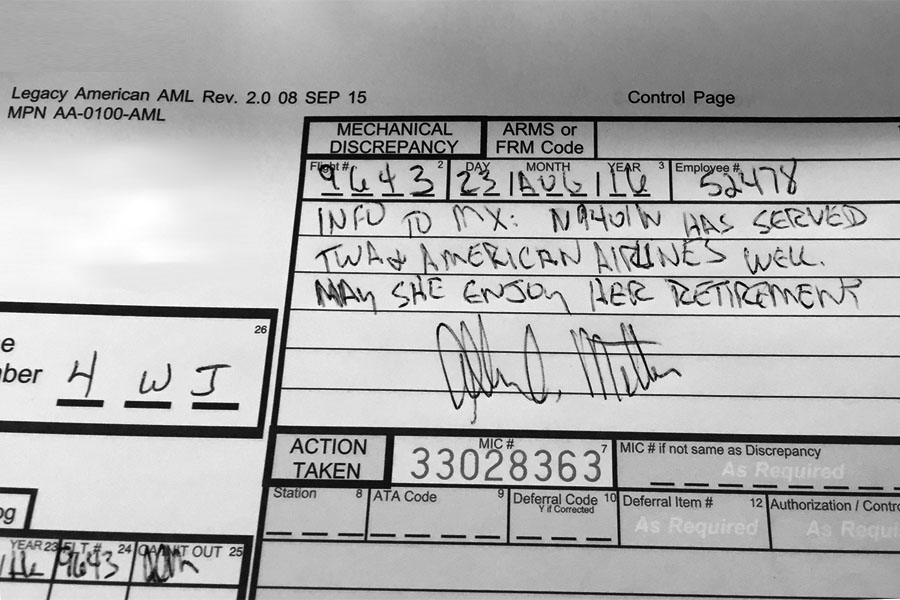 Legacy American AML Rev. 2.0 08 SEP 15
MPN AA-0100-AML
Control Page
MECHANICAL DISCREPANCY
ARMS or FRM Code
Flight # 2
9643
DAY MONTH YEAR 3
23 AUG 16
Employee #
52478
INFO TO MX: N9401W HAS SERVED
TWA & AMERICAN AIRLINES WELL.
MAY SHE ENJOY HER RETIREMENT
26
e
ber 4 W J
ACTION TAKEN
MIC # 7
33028363
MIC # if not same as Discrepancy
As Required
Station 8
ATA Code 9
Deferral Code 10
Y if Corrected
Deferral Item # 12
As Required
Authorization / Contro
As Requi
og
YEAR 23 FLT. # 24 OUT 25
16 9643